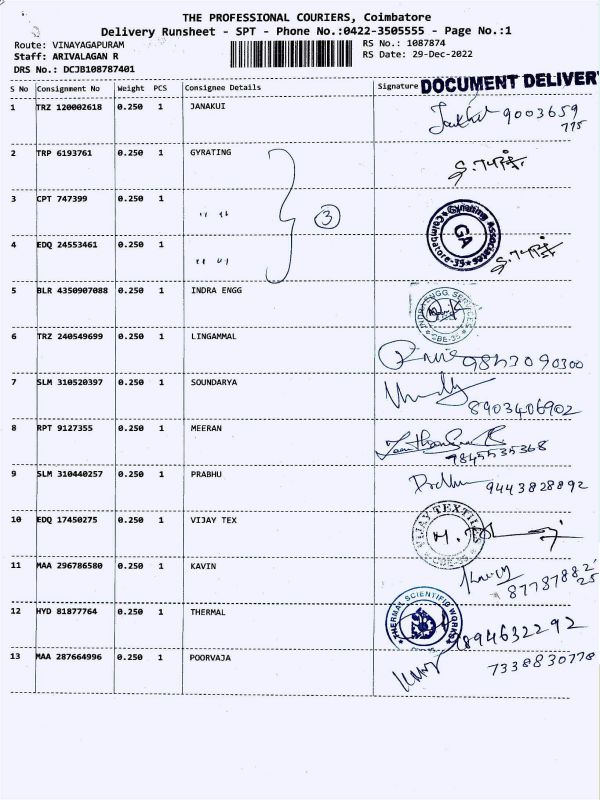 THE PROFESSIONAL COURIERS, Coimbatore
Delivery Runsheet - SPT - Phone No.:0422-3505555 - Page No.:1
Route: VINAYAGAPURAM RS No.: 1087874
Staff: ARIVALAGAN R RS Date: 29-Dec-2022
DRS No.: DCJB108787401
S No Consignment No Weight PCS Consignee Details Signature DOCUMENT DELIVER
1 TRZ 120002618 0.250 1 JANAKUI 9003659
775
2 TRP 6193761 0.250 1 GYRATING
3 CPT 747399 0.250 1 " " 3
Gyrating Associates Coimbatore-35 GA
4 EDQ 24553461 0.250 1 " "
5 BLR 4350907088 0.250 1 INDRA ENGG
INDRA ENGG. SERVICES CBE-35
6 TRZ 240549699 0.250 1 LINGAMMAL
7 SLM 310520397 0.250 1 SOUNDARYA
8903406902
8 RPT 9127355 0.250 1 MEERAN
7845535368
9 SLM 310440257 0.250 1 PRABHU 9443828892
10 EDQ 17450275 0.250 1 VIJAY TEX
VIJAY TEXTILES CBE-35
11 MAA 296786580 0.250 1 KAVIN
12 HYD 81877764 0.250 1 THERMAL
THERMAL SCIENTIFIC WORKS
13 MAA 287664996 0.250 1 POORVAJA 7338830778